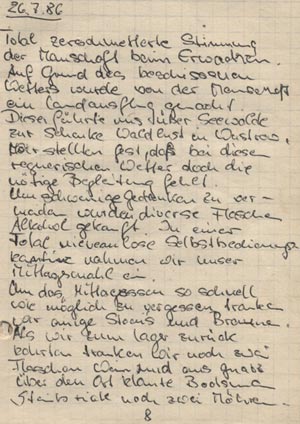 26.7.86
Total zerschmetterte Stimmung
der Manschaft beim Erwachen.
Auf Grund des beschissenen
Wetters wurde von der Manschaft
ein Landausflug gemacht.
Dieser führte uns über Seewalde
zur Schenke Waldlust in Wustrow.
Wir stellten fest, daß bei diesen
regnerischen Wetter doch die
nötige Begleitung fehlt.
Um schwenige Gedanken zu ver-
madan wurden diverse Flaschen
Alkohol gekauft. In einer
Total niveaulose Selbstbedienungs
kantine nahmen wir unser
Mittagsmahl ein.
Um das Mittagessen so schnell
wie möglich zu vergessen tranken
wir einige Sterns und Braune.
Als wir zum Lager zurück
kehrten tranken wir noch zwei
Flaschen Wein und aus
über den Ort klaute Bootsma
noch zwei Möhren.
8